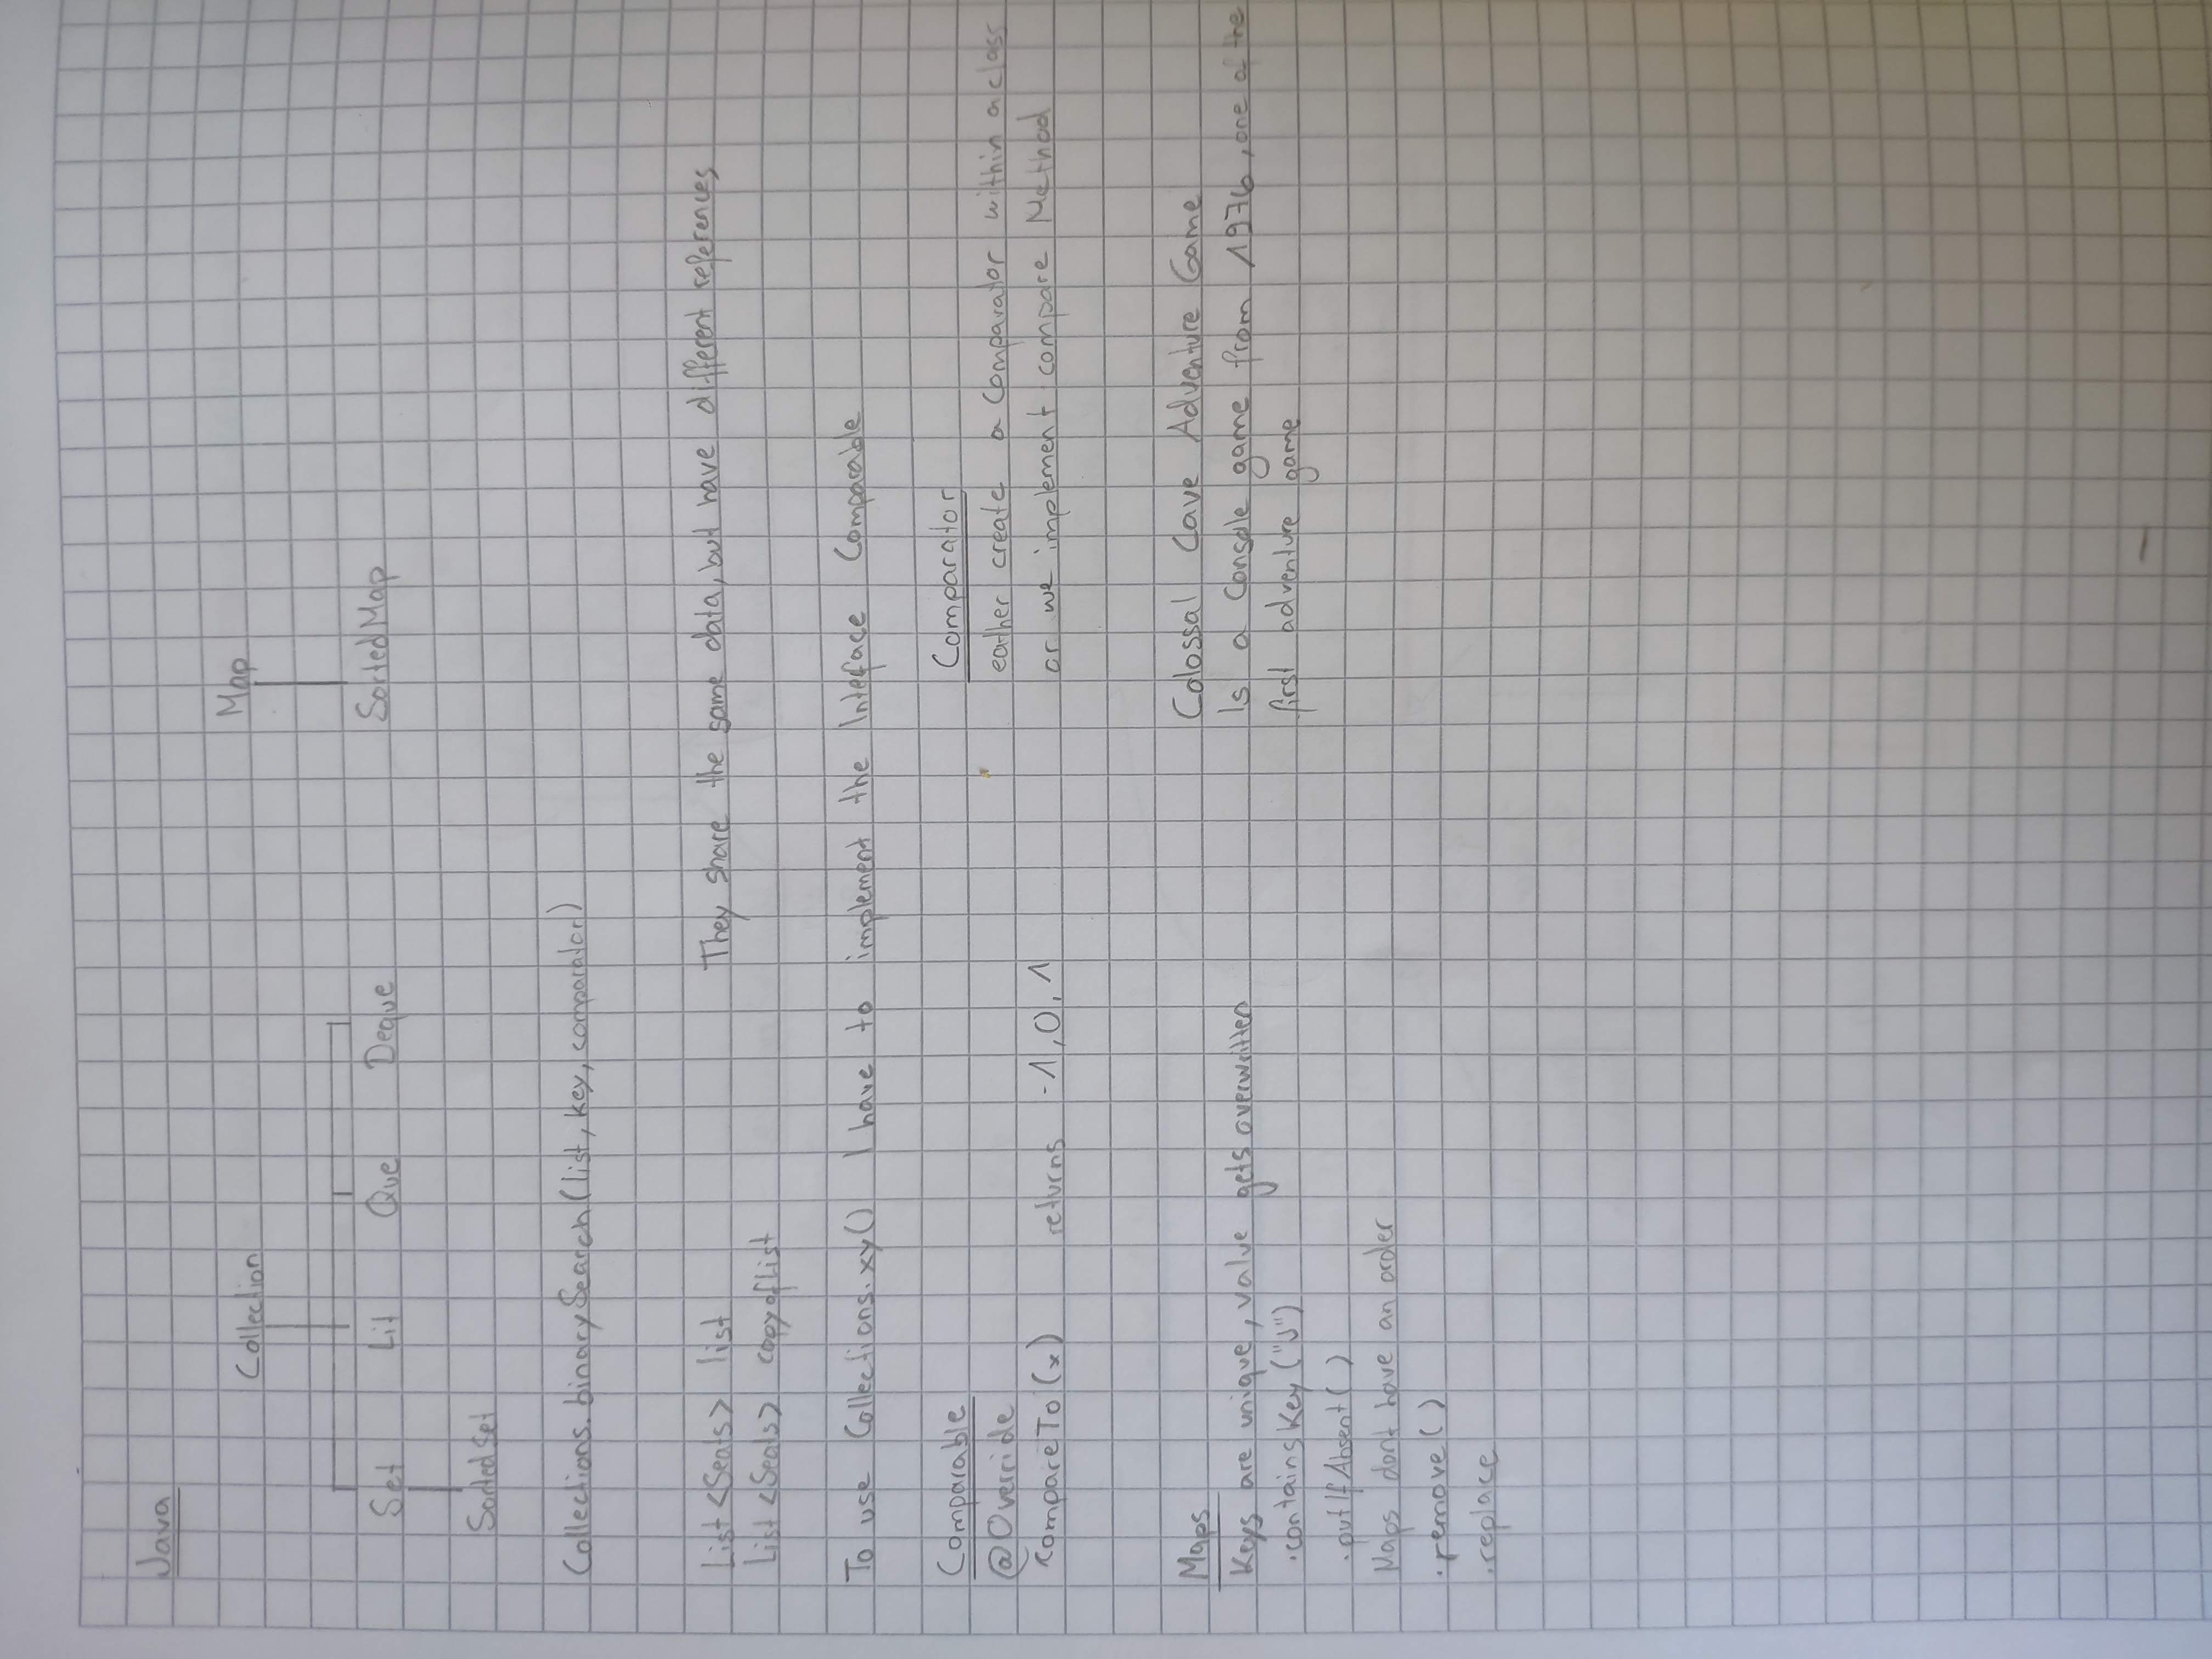 Java
Collection
Map
Set Lit Que Deque
SortedMap
SortedSet
Collections.binarySearch(list, key, comparator)
List <Seats> list
They share the same data, but have different references
List <Seats> copyofList
To use Collections.xy() I have to implement the Inteface Comparable
Comparable
@Override
compareTo(x) returns -1, 0, 1
Comparator
eather create a Comparator within a class
or we implement compare Method
Maps
Keys are unique, value gets overwritten
.containsKey("J")
.putIfAbsent( )
Maps dont have an order
.remove( )
.replace
Colossal Cave Adventure Game
Is a Console game from 1976, one of the
first adventure game